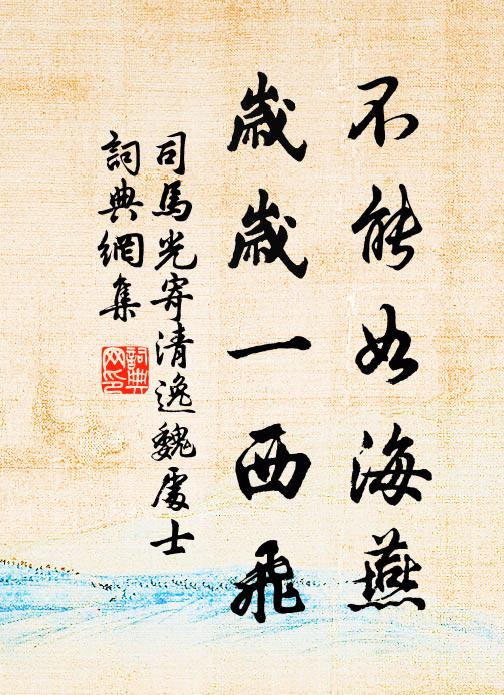 不能如海燕
歲歲一西飛
司馬光寄清逸魏處士
詞典網集
詞典
网印